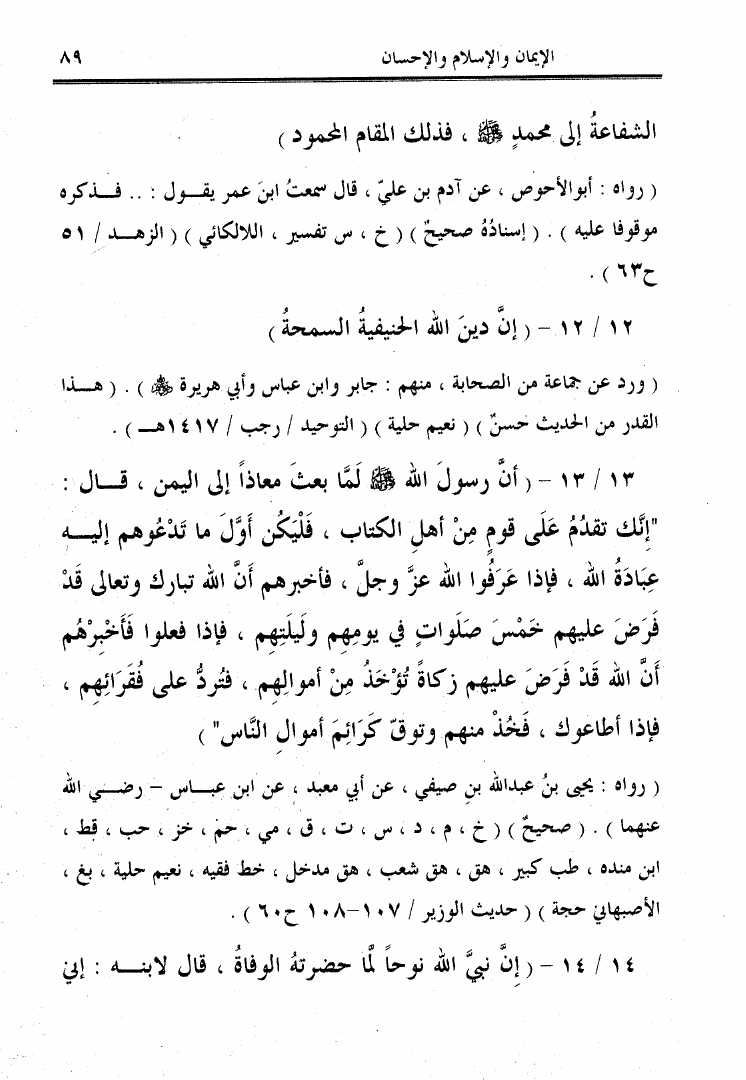 الإيمان والإسلام والإحسان ٨٩
الشفاعةُ إلى محمدٍ ﷺ ، فذلك المقام المحمود )
( رواه : أبوالأحوص ، عن آدم بن عليّ ، قال سمعتُ ابنَ عمر يقــول : .. فــذكره
موقوفا عليه ) . ( إسنادُهُ صحيحٌ ) ( خ ، س تفسير ، اللالكائي ) ( الزهــد / ٥١
ح٦٣ ) .
١٢ / ١٢ – ( إنَّ دينَ الله الحنيفيةُ السمحةُ )
( ورد عن جماعة من الصحابة ، منهم : جابر وابن عباس وأبي هريرة ﷺ ) . ( هــذا
القدر من الحديث حسنٌ ) ( نعيم حلية ) ( التوحيد / رجب / ١٤١٧هــ ) .
١٣ / ١٣ – ( أنَّ رسولَ الله ﷺ لَمَّا بعثَ معاذاً إلى اليمن ، قــال :
"إنَّك تقدُمُ عَلَى قومٍ مِنْ أهلِ الكتاب ، فَلْيَكُن أوَّلَ ما تَدْعُوهم إليــه
عِبَادَةُ الله ، فإذا عَرَفُوا الله عزَّ وجلَّ ، فأخبرهم أنَّ الله تبارك وتعالى قَدْ
فَرَضَ عليهم خَمْسَ صَلَواتٍ في يومِهم ولَيلَتِهم ، فإذا فعلوا فَأَخْبِرْهُم
أنَّ الله قَدْ فَرَضَ عليهم زكاةً تُؤْخَذُ مِنْ أموالِهم ، فتُردُّ على فُقَرَائِهم ،
فإذا أطاعوك ، فَخُذْ منهم وتوقّ كَرَائِمَ أموالِ النَّاس" )
( رواه : يحيى بنُ عبدالله بنِ صيفي ، عن أبي معبد ، عن ابن عبــاس – رضــي الله
عنهما ) . ( صحيحٌ ) ( خ ، م ، د ، س ، ت ، ق ، مي ، حم ، خز ، حب ، قط ،
ابن منده ، طب كبير ، هق ، هق شعب ، هق مدخل ، خط فقيه ، نعيم حلية ، بغ ،
الأصبهاني حجة ) ( حديث الوزير / ١٠٧–١٠٨ ح٦٠ ) .
١٤ / ١٤ – ( إنَّ نبيَّ الله نوحاً لَّا حضرتهُ الوفاةُ ، قال لابنــه : إني